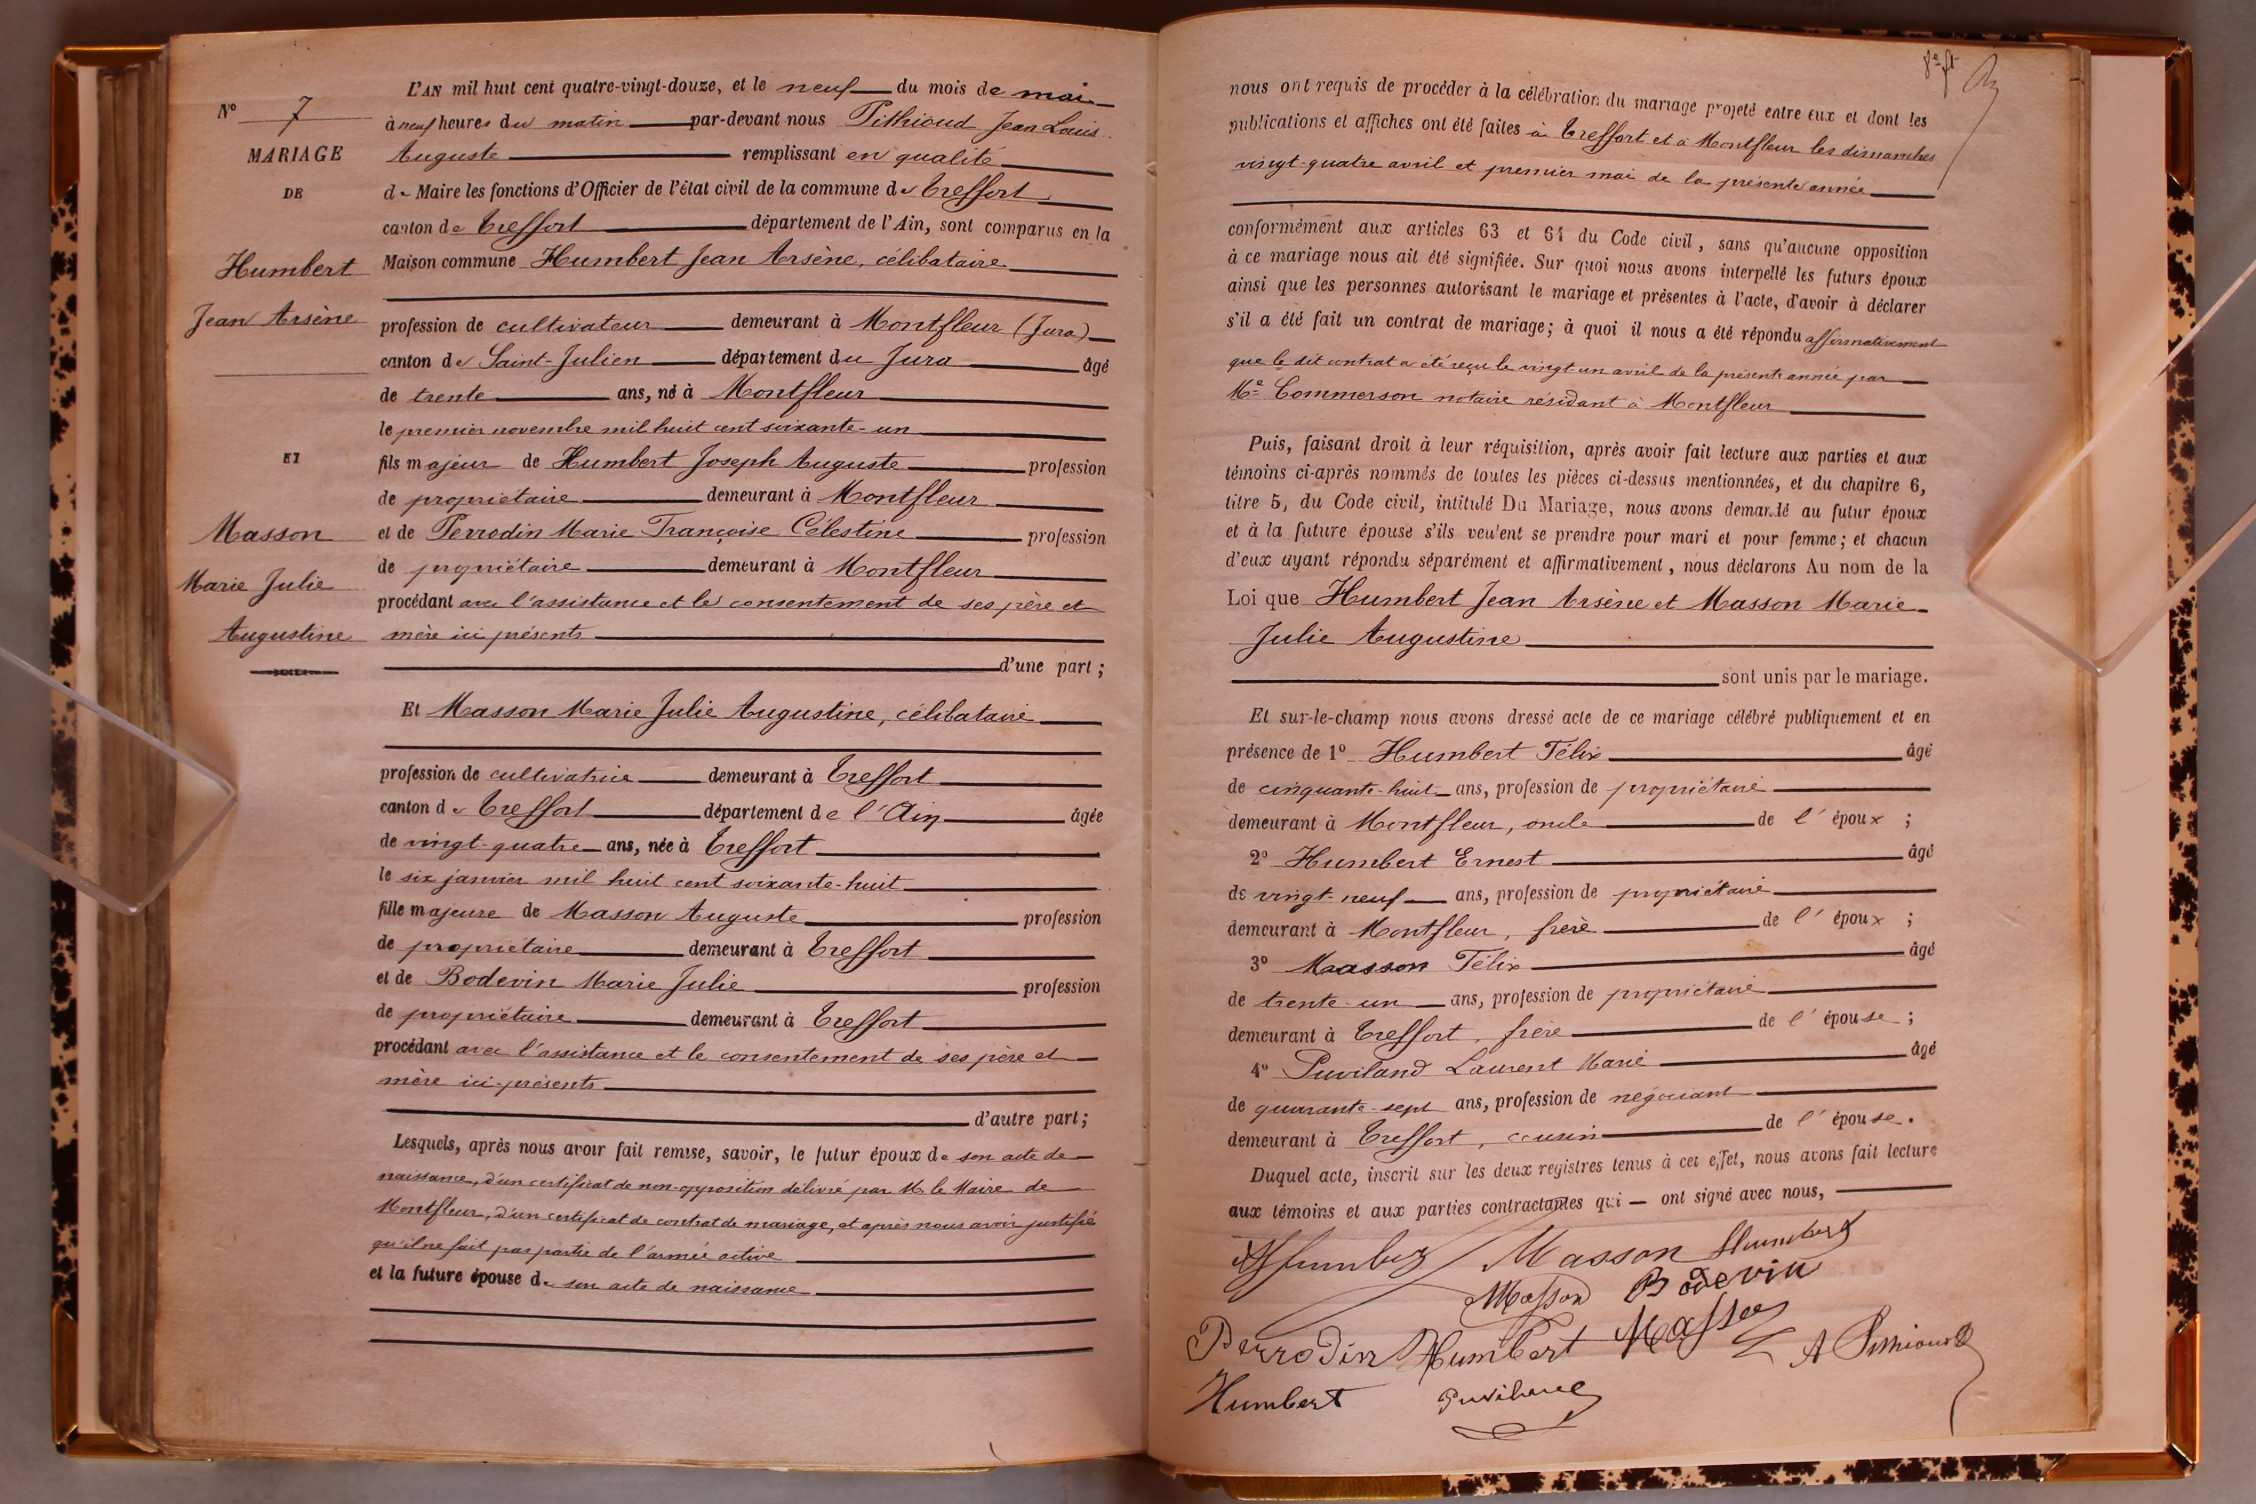 N° 7
MARIAGE
DE
Humbert
Jean Arsène
ET
Masson
Marie Julie
Augustine
L'AN mil huit cent quatre-vingt-douze, et le neuf du mois de mai
à neuf heures du matin par-devant nous Pithioud Jean Louis
Auguste remplissant en qualité
de Maire les fonctions d'Officier de l'état civil de la commune de Treffort
canton de Treffort département de l'Ain, sont comparus en la
Maison commune Humbert Jean Arsène, célibataire
profession de cultivateur demeurant à Montfleur (Jura)
canton de Saint-Julien département du Jura âgé
de trente ans, né à Montfleur
le premier novembre mil huit cent soixante-un
fils majeur de Humbert Joseph Auguste profession
de propriétaire demeurant à Montfleur
et de Perrodin Marie Françoise Célestine profession
de propriétaire demeurant à Montfleur
procédant avec l'assistance et le consentement de ses père et
mère ici présents
d'une part ;
Et Masson Marie Julie Augustine, célibataire
profession de cultivatrice demeurant à Treffort
canton de Treffort département de l'Ain âgée
de vingt-quatre ans, née à Treffort
le six janvier mil huit cent soixante-huit
fille majeure de Masson Auguste profession
de propriétaire demeurant à Treffort
et de Bodevin Marie Julie profession
de propriétaire demeurant à Treffort
procédant avec l'assistance et le consentement de ses père et
mère ici présents
d'autre part ;
Lesquels, après nous avoir fait remise, savoir, le futur époux de son acte de
naissance, d'un certificat de non-opposition délivré par M. le Maire de
Montfleur, d'un certificat de contrat de mariage, et après nous avoir justifié
qu'il ne fait pas partie de l'armée active
et la future épouse de son acte de naissance
nous ont requis de procéder à la célébration du mariage projeté entre eux et dont les
publications et affiches ont été faites à Treffort et à Montfleur les dimanches
vingt-quatre avril et premier mai de la présente année
conformément aux articles 63 et 64 du Code civil, sans qu'aucune opposition
à ce mariage nous ait été signifiée. Sur quoi nous avons interpellé les futurs époux
ainsi que les personnes autorisant le mariage et présentes à l'acte, d'avoir à déclarer
s'il a été fait un contrat de mariage ; à quoi il nous a été répondu affirmativement
que le dit contrat a été reçu le vingt-un avril de la présente année par
Me Commerson notaire résidant à Montfleur
Puis, faisant droit à leur réquisition, après avoir fait lecture aux parties et aux
témoins ci-après nommés de toutes les pièces ci-dessus mentionnées, et du chapitre 6,
titre 5, du Code civil, intitulé Du Mariage, nous avons demandé au futur époux
et à la future épouse s'ils veulent se prendre pour mari et pour femme ; et chacun
d'eux ayant répondu séparément et affirmativement, nous déclarons Au nom de la
Loi que Humbert Jean Arsène et Masson Marie
Julie Augustine
sont unis par le mariage.
Et sur-le-champ nous avons dressé acte de ce mariage célébré publiquement et en
présence de 1° Humbert Félix âgé
de cinquante-huit ans, profession de propriétaire
demeurant à Montfleur, oncle de l'époux ;
2° Humbert Ernest âgé
de vingt-neuf ans, profession de propriétaire
demeurant à Montfleur, frère de l'époux ;
3° Masson Félix âgé
de trente-un ans, profession de propriétaire
demeurant à Treffort, frère de l'épouse ;
4° Puviland Laurent Marie âgé
de quarante-sept ans, profession de négociant
demeurant à Treffort, cousin de l'épouse.
Duquel acte, inscrit sur les deux registres tenus à cet effet, nous avons fait lecture
aux témoins et aux parties contractantes qui ont signé avec nous,
AHumbert Masson Humbert
Masson Bodevin
Perrodin Humbert Masson A Pithioud
Humbert Puviland